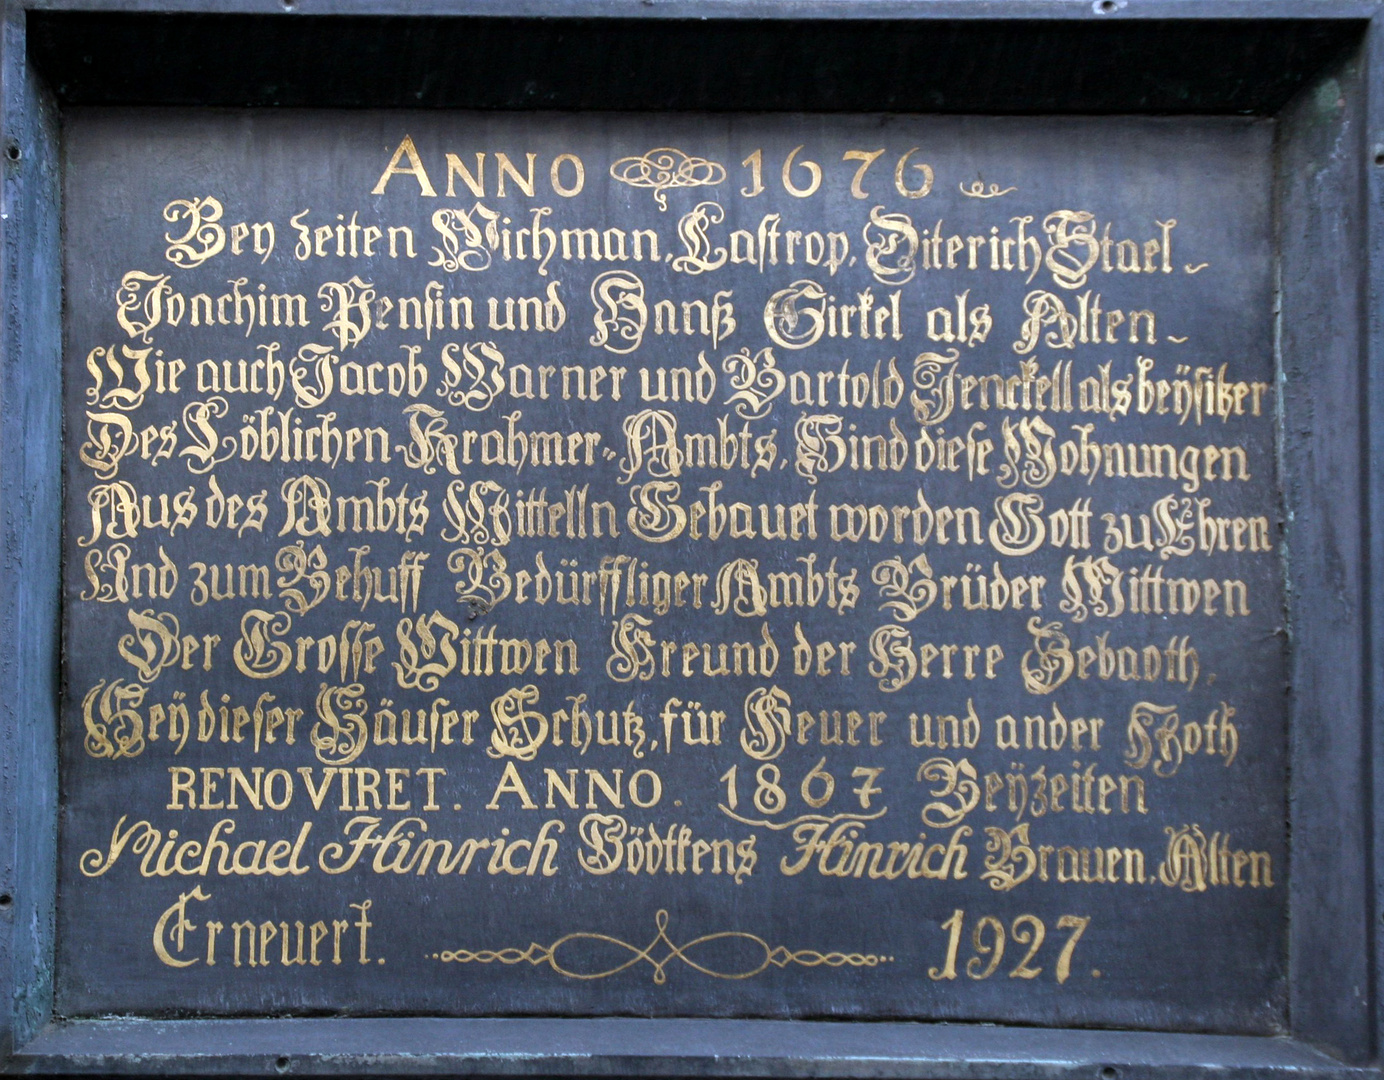 ANNO 1676
Bey zeiten Wichman, Castrop, Diterich Stael
Joachim Pensin und Hanß Sirkel als Alten
Wie auch Jacob Warner und Bartold Jenckell als beÿsitzer
Des Löblichen Krahmer-Ambts, Sind diese Wohnungen
Aus des Ambts Mittelln Gebauet worden Gott zu Ehren
Und zum Behuff Bedürffliger Ambts Brüder Wittwen
Der Grosse Wittwen Freund der Herre Zebaoth,
Seÿ dieser Häuser Schutz, für Feuer und ander Noth
RENOVIRET. ANNO. 1867 Beÿzeiten
Michael Hinrich Gödtkens Hinrich Brauen, Alten
Erneuert. 1927.